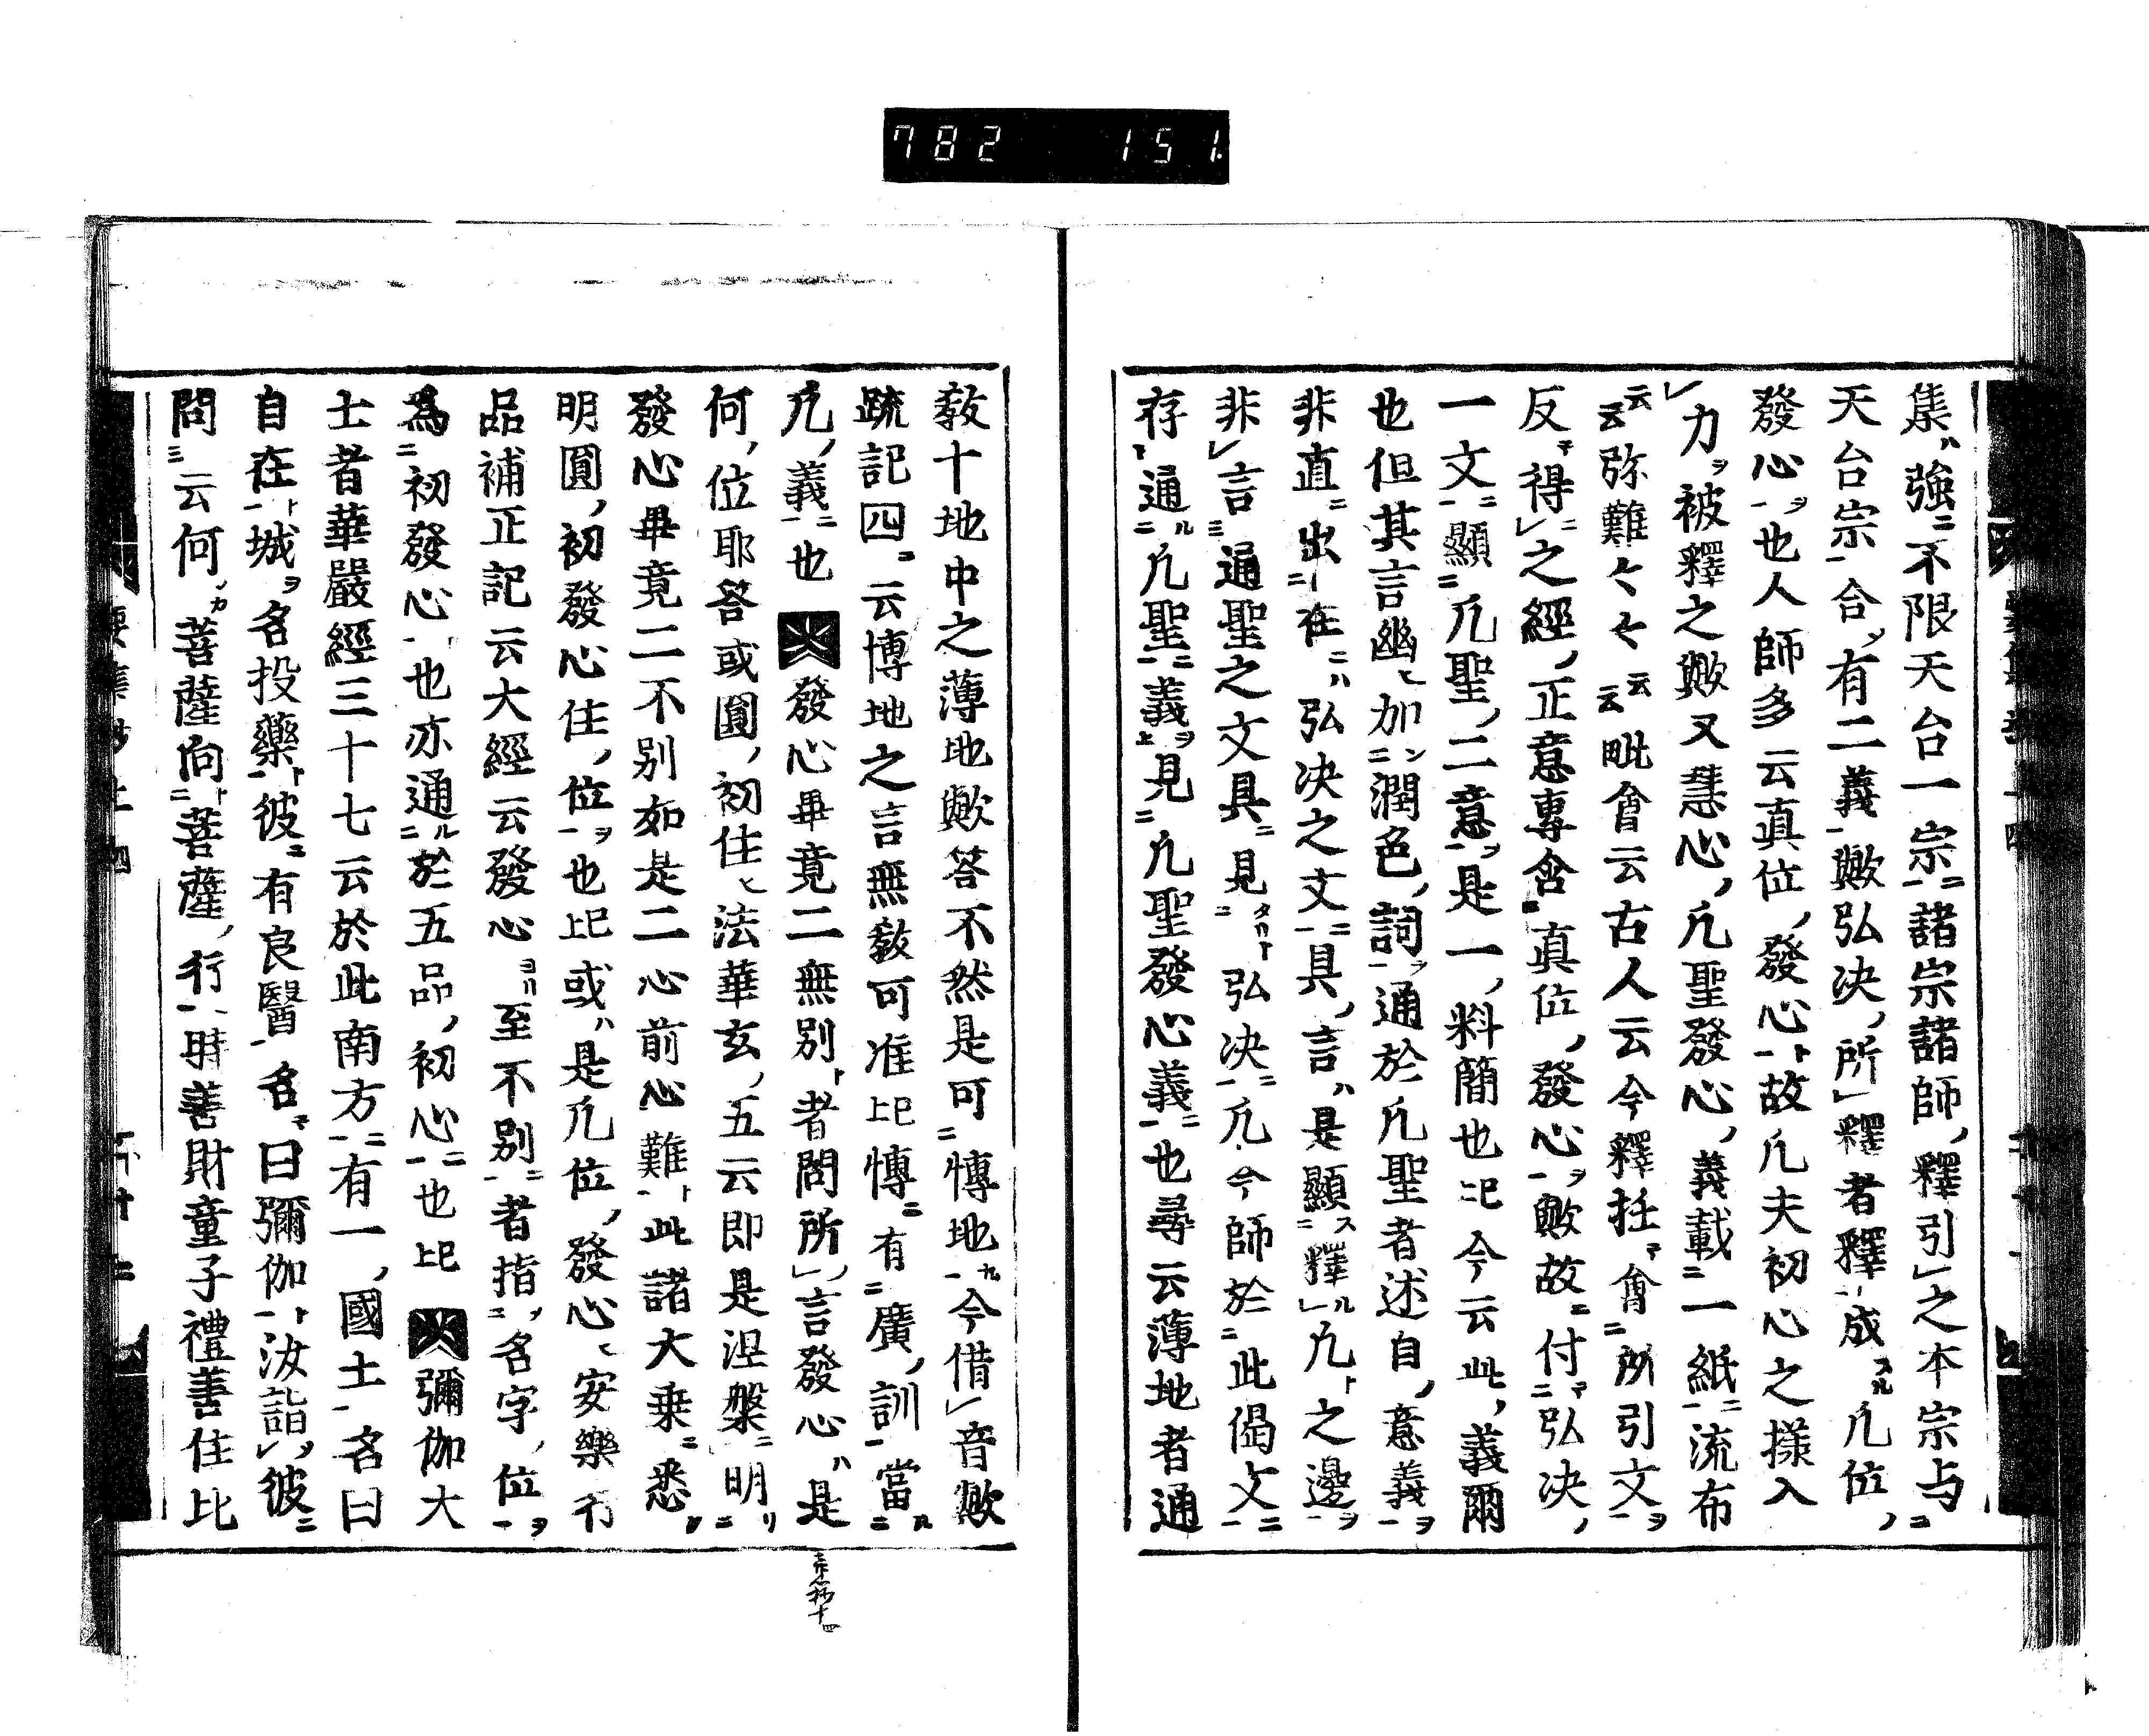 782 151.
集強不限天台一宗諸宗諸師釋引之本宗与
天台宗合有二義歟弘決所釋者釋成凢位
發心也人師多云真位發心故凢夫初心之㨾入
力被釋之歟又慧心凢聖發心義載一紙流布
云云弥難〻〻云云毗會云古人云今釋抂會所引文
反得之經正意專含真位發心歟故付弘決
一文顯凢聖二意是一料簡也 今云此義爾
也但其言幽加潤色詞通於凢聖者述自意義
非直出在弘决之文具言是顯釋凢之邊
非言通聖之文具見弘决凢今師於此偈文
存通凢聖義見凢聖發心義也尋云薄地者通
教十地中之薄地歟答不然是可愽地今借音歟
疏記四云博地之言無教可准 愽有廣訓當
凢義也 發心畢竟二無別者問所言發心是
何位耶答或圓初住法華玄五云即是涅槃明
發心畢竟二不別如是二心前心難此諸大乗悉
明圓初發心住位也 或是凢位發心安樂行
品補正記云大經云發心至不別者指名字位
爲初發心也亦通於五品初心也 彌伽大
士者華嚴經三十七云於此南方有一國土名曰
自在城名投藥彼有良醫名曰彌伽汝詣彼
問云何菩薩向菩薩行時善財童子禮善住比